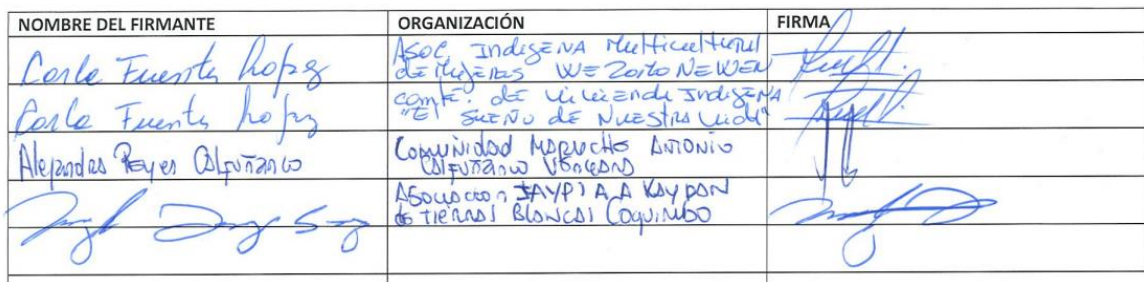 NOMBRE DEL FIRMANTE ORGANIZACIÓN FIRMA
Carla Fuentes Lopez Asoc. Indigena Multicultural
de Mujeres WE Zomo NEWEN
Carla Fuentes Lopez comté. de vivienda Indigena
"El Sueño de Nuestra Vida"
Alejandra Reyes Calfunanco Comunidad Mapuche Antonio
Calfunanco
Asociacion JAYPI A A KAYPAN
de TIERRAS BLANCAS COQUIMBO